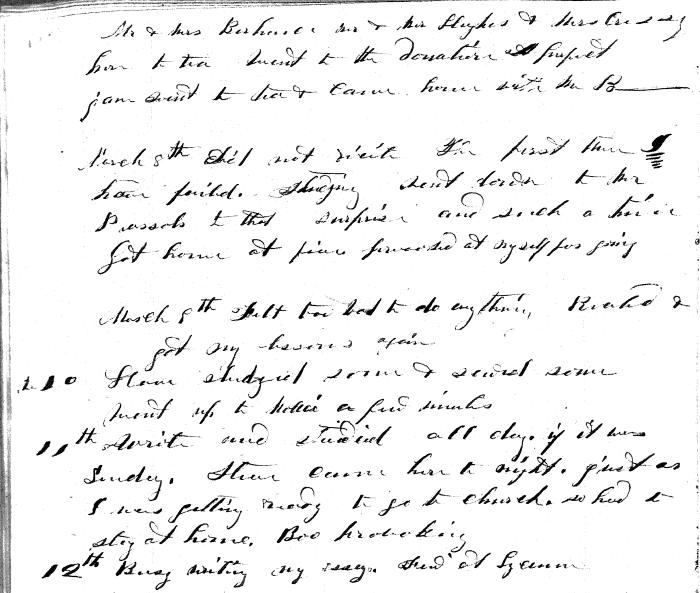 Mr & Mrs Mr & Mr Hughes & Mrs
here to tea went to the donation
went to tea & came home with Mr B
March 8th Did not recite The first time I
have failed. went down to Mr
to that surprise and such a time
Got home at five provoked at myself for going
March 9th Felt too bad to do anything, &
got my lessons again
10 Have studied some & sewed some
went up to a few minutes
11th Write and studied all day. if it was
Sunday. came here to night. just as
I was getting ready to go to church. so had to
stay at home. Boo provoking
12th Busy writing my essay. at Lyceum